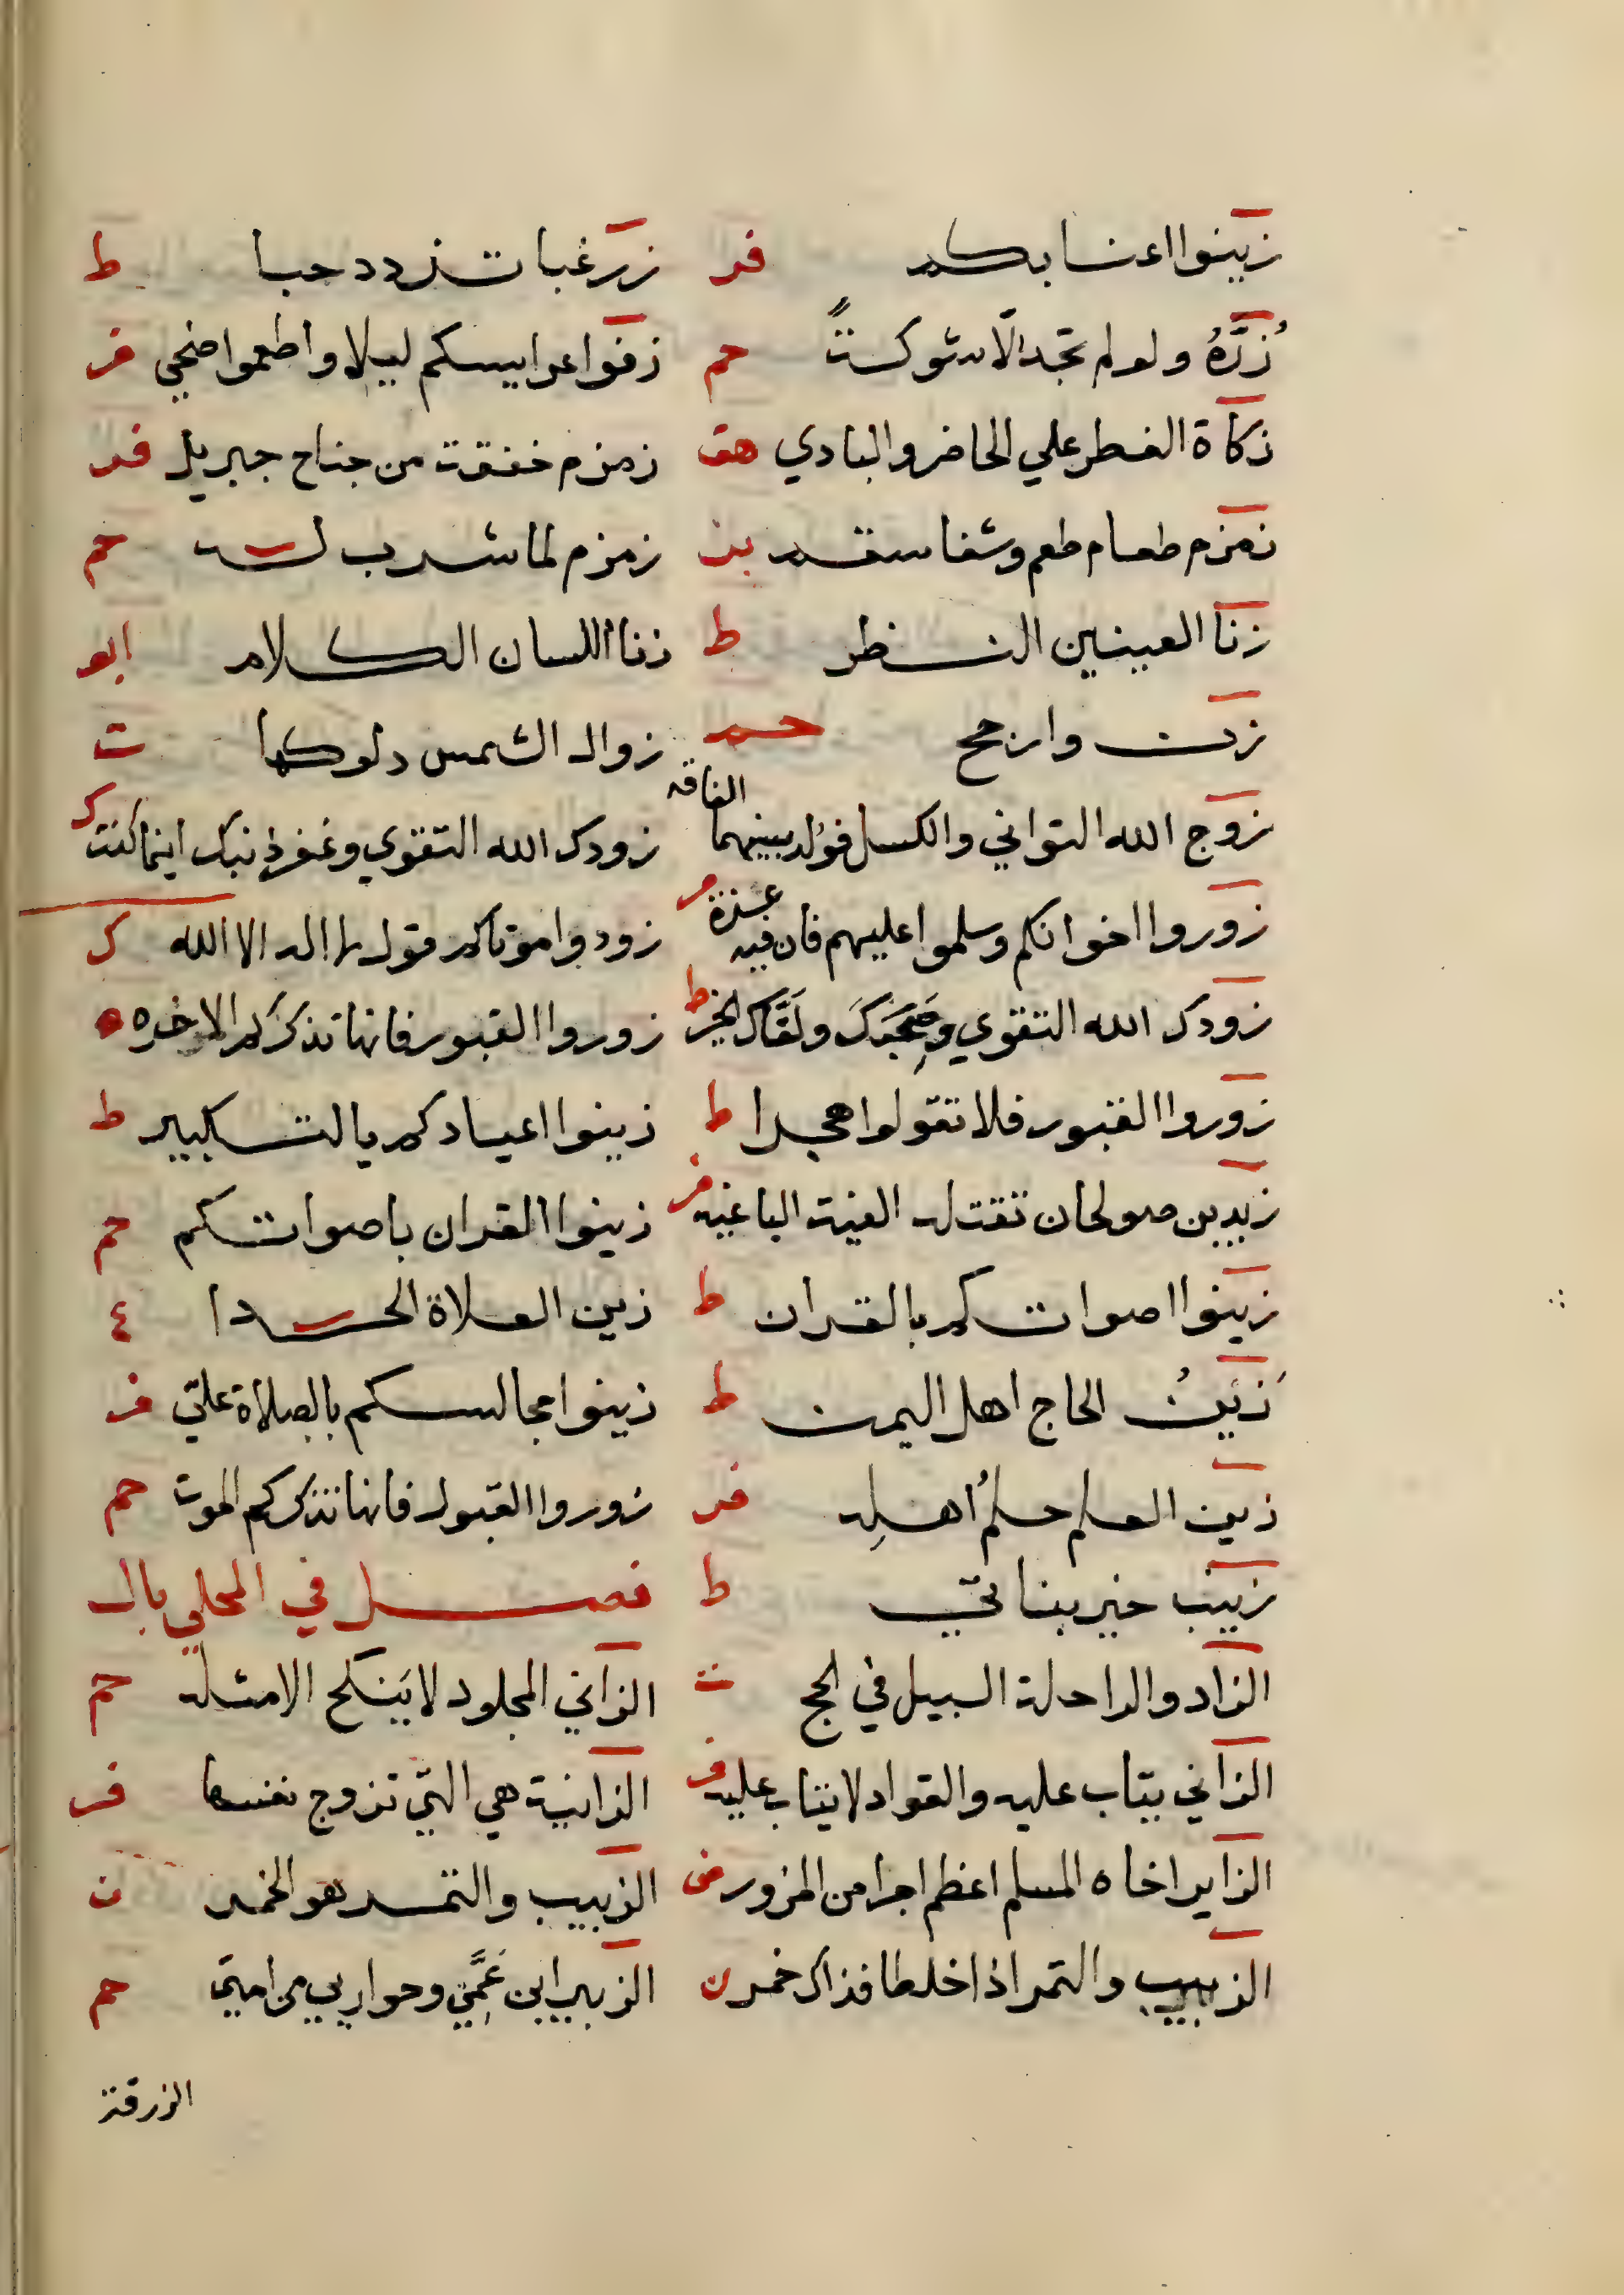 زينوا اعنابكم فر زر غبا تزدد حبا ط
زُرّهُ ولو لم تجد الّا شوكةً حم زفوا عرايسكم ليلا واطعموا ضحي فر
زكاة الفطر علي الحاضر والبادي هق زمزم خفقة من جناح جبريل فر
زمزم طعام طعم وشفا سقم بز زمزم لما شرب له حم
زنا العينين النظر ط زنا اللسان الكلام ابو
زن وارجح حم زوال الشمس دلوكها ت
زوج الله التواني والكسل فوُلد بينهما الفاقه زودك الله التقوي وغفر ذنبك اينما كنت ك
زوروا اخوانكم وسلموا عليهم فان فيه عبرة فر زودوا موتاكم قول لا اله الا الله ك
زودك الله التقوي وصَحِبَكَ ولَقَّاك الخير ط زوروا القبور فانها تذكركم الاخره ه
زوروا القبور فلا تقولوا هجرا ط زينوا اعيادكم بالتكبير ط
زيد بن صولحان تقتله الفية الباغيه فر زينوا القران باصواتكم حم
زينوا اصواتكم بالقران ط زين الصلاة الحدا ع
زَيْنُ الحاج اهل اليمن ط زينوا مجالسكم بالصلاة عليّ فر
زين العلم حلمُ اهلِه فر زوروا القبور فانها تذكركم الموت حم
زينب خير بناتي ط فصل في المحلي بال
الزاد والراحلة السبيل في الحج ت الزاني المجلود لا يَنكح الا مثله حم
الزاني يتاب عليه والقواد لا يتاب عليه فر الزانية هي التي تزوج نفسها فر
الزاير اخاه المسلم اعظم اجرا من المزور فر الزبيب والتمر هو الخمر ن
الزبيب والتمر اذا خلطا فذاك خمر ن الزبير ابن عَمَّتي وحواريي من امتي حم
الزرقة